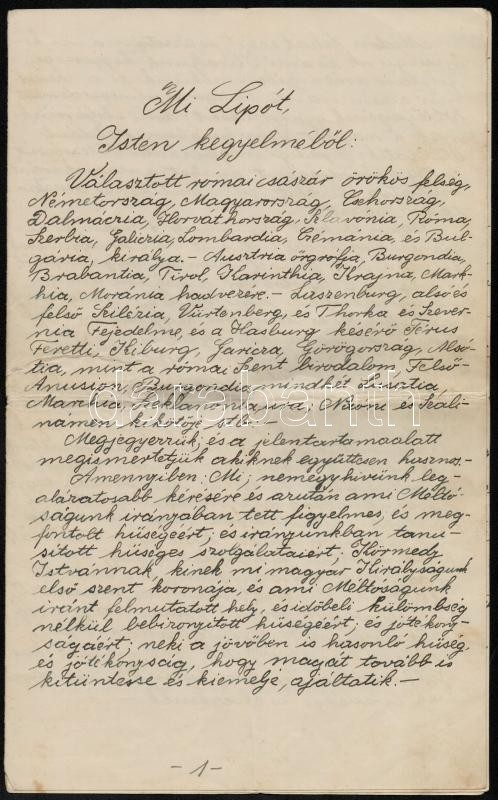 Mi Lipót,
Isten kegyelméből:
Választott római császár örökös felség,
Németország, Magyarország, Csehország,
Dalmáczia, Horvátország, Szlavónia, Róma,
Szerbia, Galiczia, Lombardia, és Bul-
gária, királya.- Ausztria őrgrófja, Burgondia,
Brabantia, Tirol, Karinthia, Krajna, Mark-
hia, Moránia hadvezére.- Luxenburg, alsó és
felső Szilézia, Vürtenberg, és Thorka és Szever-
nia Fejedelme, és a Hasburg kisérő
Feretti, Kiburg, Goricza, Görögország, Alsó-
tia, mint a római Szent birodalom Felső-
Burgondia, mindkét
Marchia, ura; és
kikötője stb.-
Megjegyezzük, és a jelen tartama alatt
megismertetjük akiknek együttesen hasznos.-
Amennyiben: Mi, nemegy hivünk leg-
alázatosabb kérésére és azután a mi Méltó-
ságunk irányában tett figyelmes, és meg-
fontolt hűségéért; és irányunkban tanu-
sított hűséges szolgálataiért: Körmedy
Istvánnak, kinek mi magyar Királyságunk
első szent koronája, és ami Méltóságunk
iránt felmutatott hely, és időbeli külömbség
nélkül bebizonyított hűségéért; és jótékony-
ságáért; neki a jövőben is hasonló hűség,
és jótékonyság, hogy magát tovább is
kitüntesse és kiemelje, ajáltatik.-
-1-
darabanth